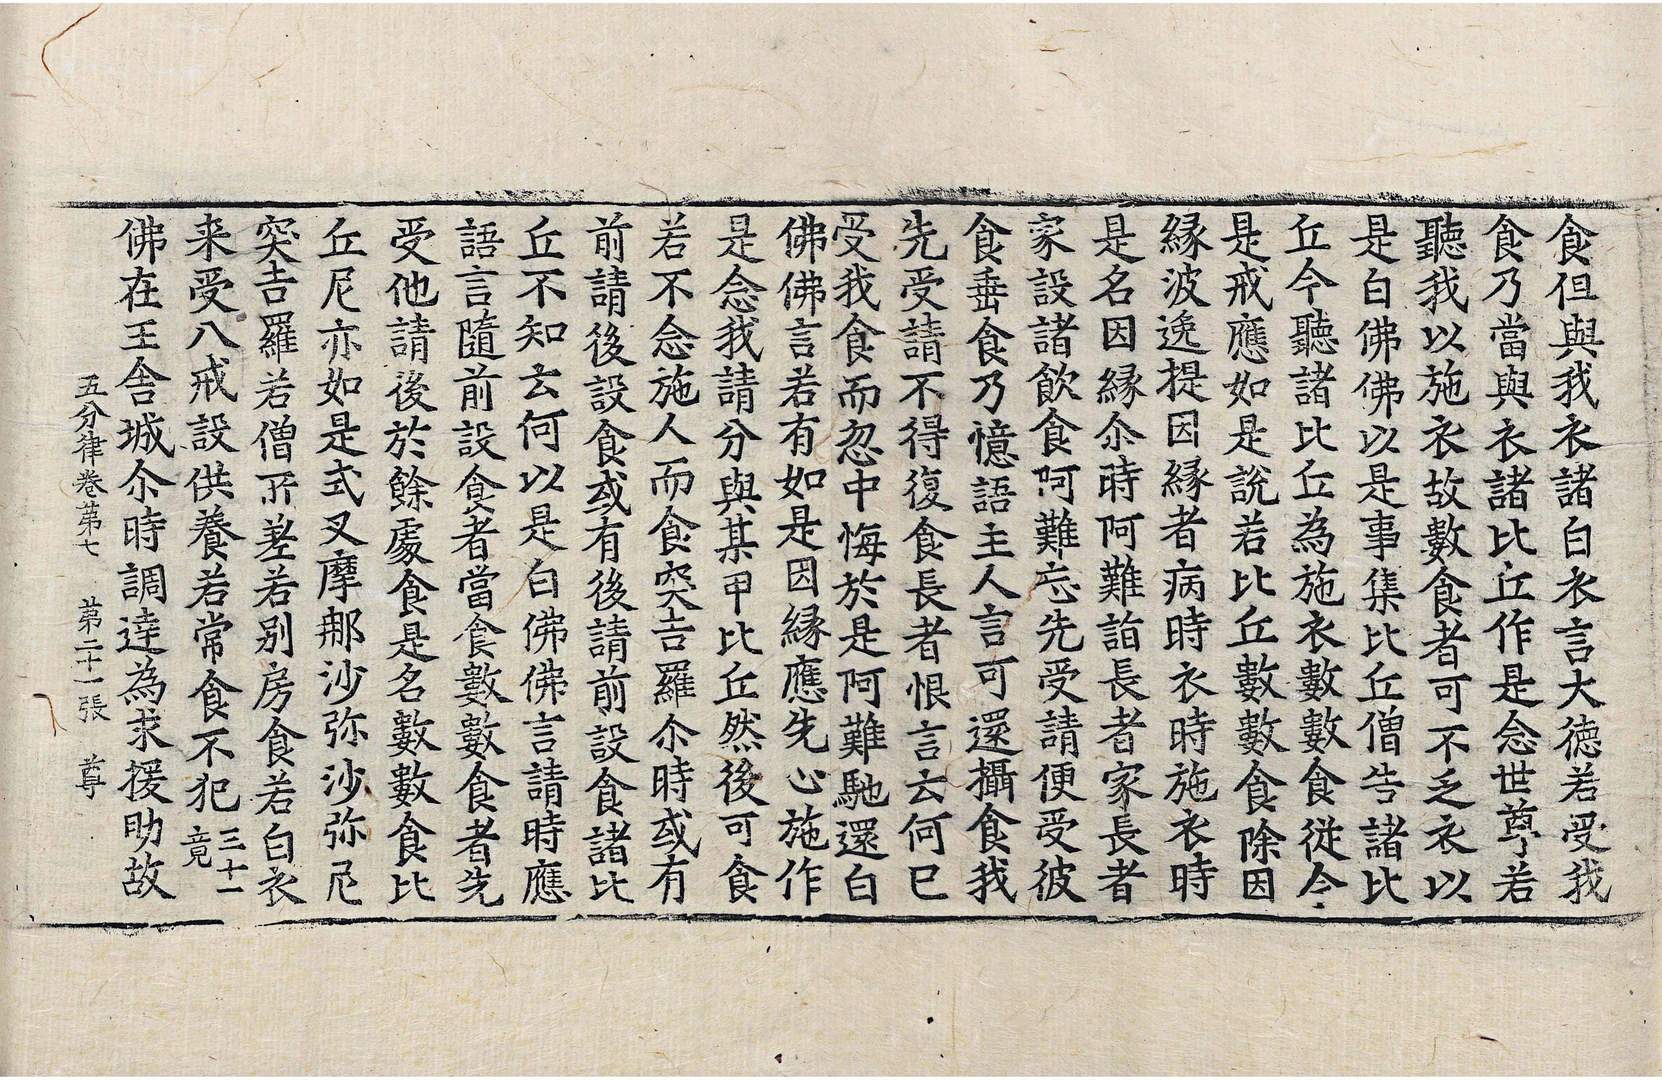 食但與我衣諸白衣言大德若受我
食乃當與衣諸比丘作是念世尊若
聽我以施衣故數數食者可不乏衣以
是白佛佛以是事集比丘僧告諸比
丘今聽諸比丘為施衣數數食從今
是戒應如是說若比丘數數食除因
緣波逸提因緣者病時衣時施衣時
是名因緣尒時阿難詣長者家長者
家設諸飲食阿難忘先受請便受彼
食垂食乃憶語主人言可還攝食我
先受請不得復食長者恨言云何已
受我食而忽中悔於是阿難馳還白
佛佛言若有如是因緣應先心施作
是念我請分與某甲比丘然後可食
若不念施人而食突吉羅尒時或有
前請後設食或有後請前設食諸比
丘不知云何以是白佛佛言請時應
語言隨前設食者當食數數食者先
受他請後於餘處食是名數數食比
丘尼亦如是式叉摩那沙弥沙弥尼
突吉羅若僧所差若別房食若白衣
来受八戒設供養若常食不犯三十一竟
佛在王舍城尒時調達為求援助故
五分律卷第七　第二十一張　尊